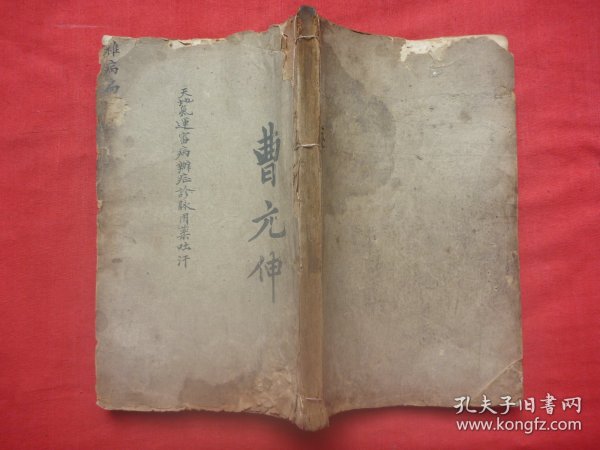 曹元伸
天地氣運審病辨症診脉用藥吐汗
雜病
孔夫子旧书网
www.kongfz.com